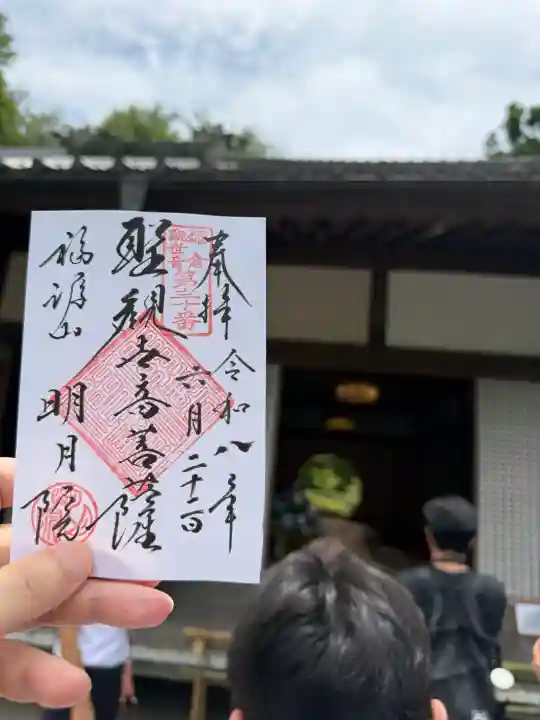 奉拝
令和八年
六月二十一日
鎌倉
観世音
第三十番
聖観世音菩薩
福源山
明月院